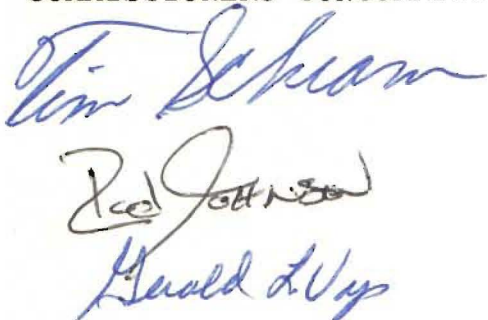 Tim Schram
Rod Johnson
Gerald L Vap